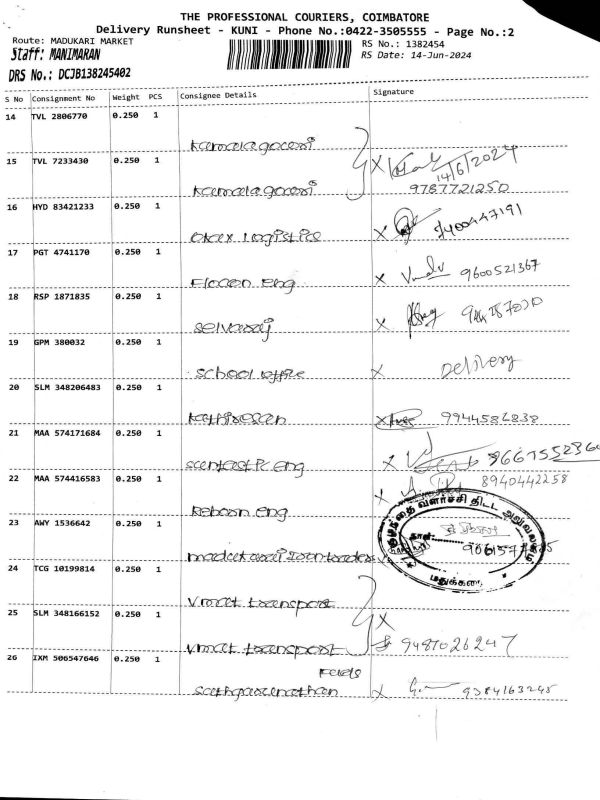 THE PROFESSIONAL COURIERS, COIMBATORE
Delivery Runsheet - KUNI - Phone No.:0422-3505555 - Page No.:2
Route: MADUKARI MARKET
RS No.: 1382454
Staff: MANIMARAN
RS Date: 14-Jun-2024
DRS No.: DCJB138245402
S No Consignment No Weight PCS Consignee Details Signature
14 TVL 2806770 0.250 1
Kamalagowri
15 TVL 7233430 0.250 1
14/6/2024
Kamalagowri 9787721250
16 HYD 83421233 0.250 1
logistics
17 PGT 4741170 0.250 1
Eng 9600521367
18 RSP 1871835 0.250 1
Selvaraj
19 GPM 380032 0.250 1
Delivery
school office X
20 SLM 348206483 0.250 1
Kathiresan
21 MAA 574171684 0.250 1
eng
22 MAA 574416583 0.250 1 8940442258
eng
23 AWY 1536642 0.250 1
குழந்தை வளர்ச்சி திட்ட அலுவலகம்
நாள்:
மதுக்கரை
24 TCG 10199814 0.250 1
Vmat transport
25 SLM 348166152 0.250 1
Vmat transport 9487026247
26 IXM 506547646 0.250 1
X 9384163245